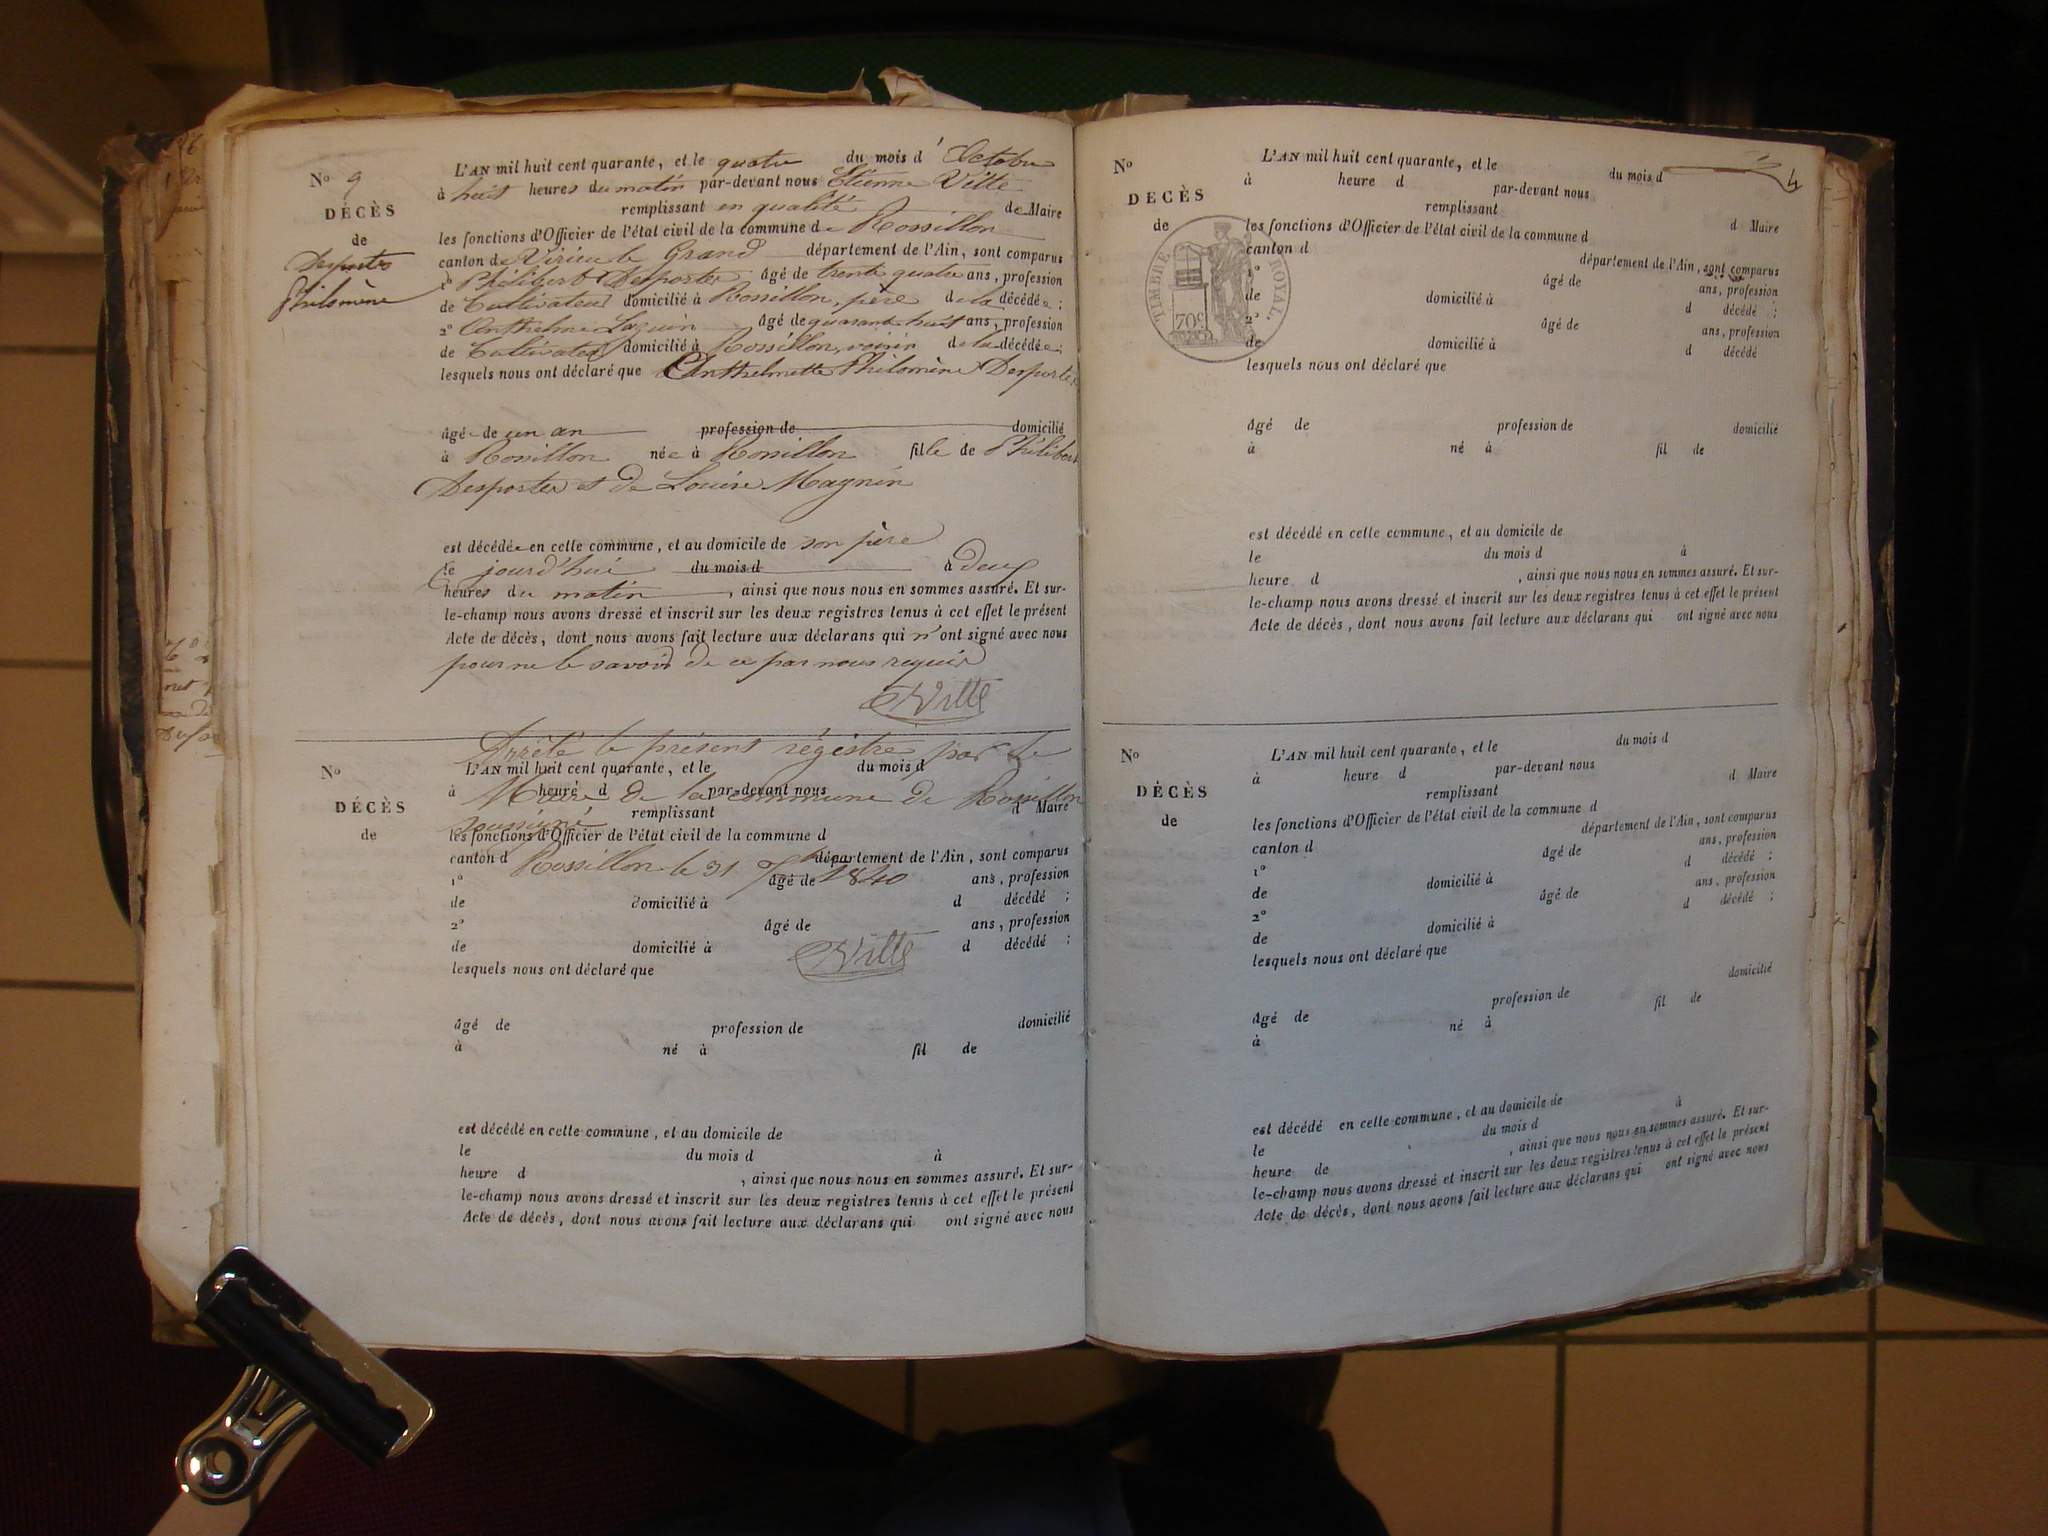 N° 9
DÉCÈS
de
Desportes
Philomène
L'AN mil huit cent quarante, et le quatre du mois d'Octobre
à huit heures du matin par-devant nous Etienne Vitte
remplissant en qualité de Maire
les fonctions d'Officier de l'état civil de la commune de Rossillon
canton de Virieu le Grand département de l'Ain, sont comparus
1° Philibert Desportes âgé de trente quatre ans, profession
de Cultivateur domicilié à Rossillon, père de la décédée ;
2° Anthelme âgé de quarante huit ans, profession
de Cultivateur domicilié à Rossillon, voisin de la décédée ;
lesquels nous ont déclaré que Anthelmette Philomène Desportes
âgé de un an profession de domicilié
à Rossillon née à Rossillon fille de Philibert
Desportes et de Louise Magnin
est décédée en cette commune, et au domicile de son père
le jourd'hui du mois d à deux
heures du matin, ainsi que nous nous en sommes assuré. Et sur-
le-champ nous avons dressé et inscrit sur les deux registres tenus à cet effet le présent
Acte de décès, dont nous avons fait lecture aux déclarans qui n'ont signé avec nous
pour ne le savoir de ce par nous requis
Vitte
Arrêté le présent régistre par le
Maire de la commune de Rossillon
soussigné
Rossillon le 31 1840
Vitte
N°
DÉCÈS
de
L'AN mil huit cent quarante, et le du mois d
à heure d par-devant nous
remplissant d Maire
les fonctions d'Officier de l'état civil de la commune d
canton d département de l'Ain, sont comparus
1° âgé de ans, profession
de domicilié à d décédé ;
2° âgé de ans, profession
de domicilié à d décédé ;
lesquels nous ont déclaré que
âgé de profession de domicilié
à né à fil de
est décédé en cette commune, et au domicile de
le du mois d à
heure d , ainsi que nous nous en sommes assuré. Et sur-
le-champ nous avons dressé et inscrit sur les deux registres tenus à cet effet le présent
Acte de décès, dont nous avons fait lecture aux déclarans qui ont signé avec nous
4
N°
DÉCÈS
de
TIMBRE ROYAL
70c
L'AN mil huit cent quarante, et le du mois d
à heure d par-devant nous
remplissant d Maire
les fonctions d'Officier de l'état civil de la commune d
canton d département de l'Ain, sont comparus
1° âgé de ans, profession
de domicilié à d décédé ;
2° âgé de ans, profession
de domicilié à d décédé
lesquels nous ont déclaré que
âgé de profession de domicilié
à né à fil de
est décédé en cette commune, et au domicile de
le du mois d à
heure d , ainsi que nous nous en sommes assuré. Et sur-
le-champ nous avons dressé et inscrit sur les deux registres tenus à cet effet le présent
Acte de décès, dont nous avons fait lecture aux déclarans qui ont signé avec nous
N°
DÉCÈS
de
L'AN mil huit cent quarante, et le du mois d
à heure d par-devant nous
remplissant d Maire
les fonctions d'Officier de l'état civil de la commune d
canton d département de l'Ain, sont comparus
1° âgé de ans, profession
de domicilié à d décédé ;
2° âgé de ans, profession
de domicilié à d décédé ;
lesquels nous ont déclaré que
âgé de profession de domicilié
à né à fil de
est décédé en cette commune, et au domicile de
le du mois d à
heure de , ainsi que nous nous en sommes assuré. Et sur-
le-champ nous avons dressé et inscrit sur les deux registres tenus à cet effet le présent
Acte de décès, dont nous avons fait lecture aux déclarans qui ont signé avec nous